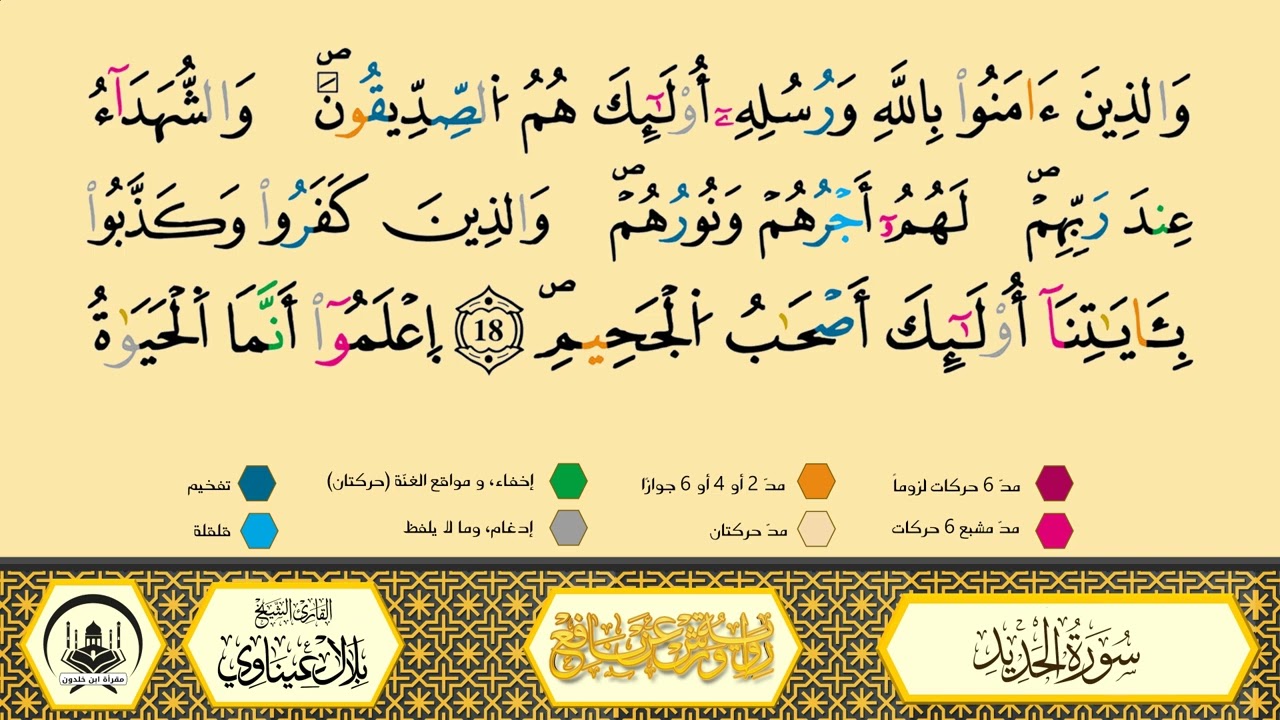 وَالذِينَ ءَامَنُواْ بِاللَّهِ وَرُسُلِهِۦٓ أُوْلَٰٓئِكَ هُمُ اُ۬لصِّدِّيقُونَۖ وَالشُّهَدَآءُ
عِندَ رَبِّهِمْۖ لَهُمُۥٓ أَجْرُهُمْ وَنُورُهُمْۖ وَالذِينَ كَفَرُواْ وَكَذَّبُواْ
بِـَٔايَٰتِنَآ أُوْلَٰٓئِكَ أَصْحَٰبُ اُ۬لْجَحِيمِۖ 18 اِعْلَمُوٓاْ أَنَّمَا اَ۬لْحَيَوٰةُ
مدّ 6 حركات لزوماً مدّ 2 أو 4 أو 6 جوازًا إخفاء، و مواقع الغنّة (حركتان) تفخيم
مدّ مشبع 6 حركات مدّ حركتان إدغام، وما لا يلفظ قلقلة
سُورَةُ الحَدِيدِ
رواية ورش عن نافع
القارئ الشيخ
بلال عيناوي
مقرأة ابن خلدون